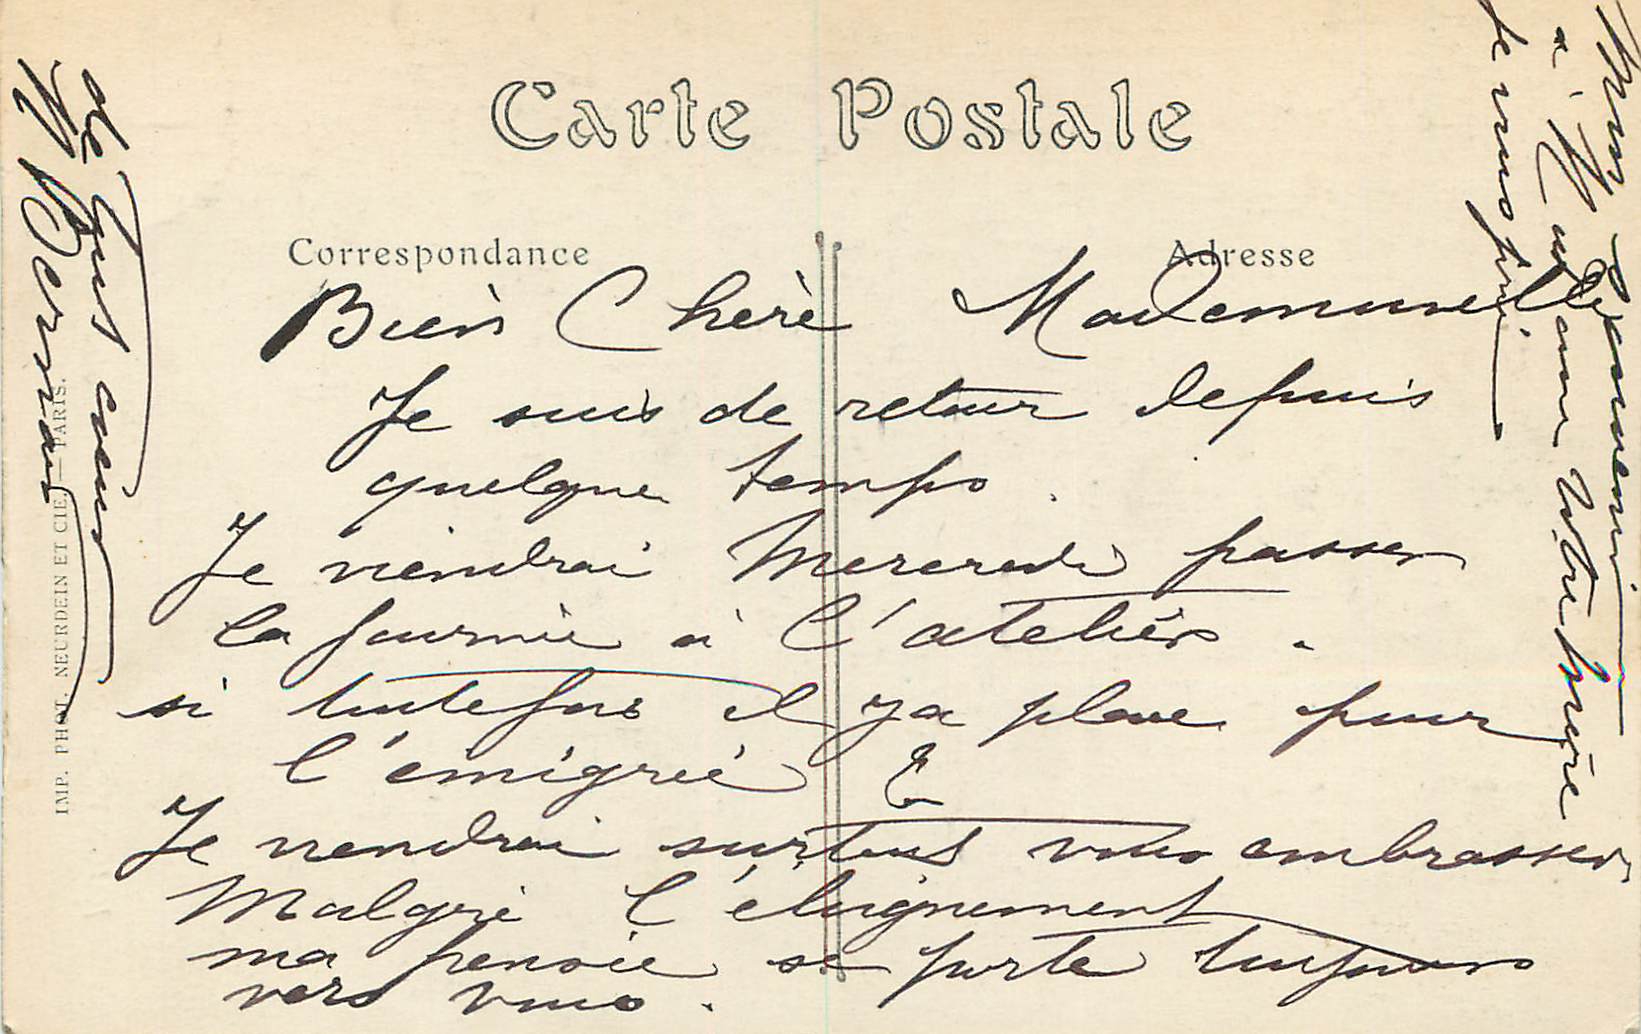 Carte Postale
Correspondance
Adresse
Bien Chère Mademoiselle
Je suis de retour depuis
quelque temps.
Je viendrai Mercredi passer
la journée à l'atelier.
si toutefois il y a place pour
l'émigrée
Je viendrai surtout vous embrasser
Malgré l'éloignement
ma pensée se porte toujours
vers vous.
Mon
à Madame Votre mère
je vous prie.
de tout cœur
M Bernard
IMP. PHOT. NEURDEIN ET CIE. — PARIS.